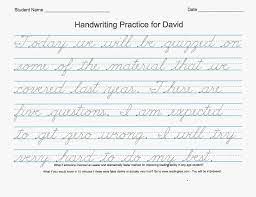 Student Name Date
Handwriting Practice for David
Today we will be quizzed on
some of the material that we
covered last year. There are
five questions. I am expected
to get zero wrong. I will try
very hard to do my best.